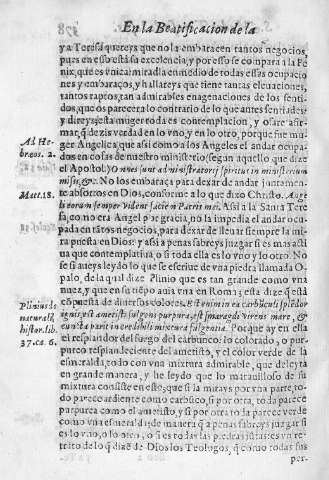 En la Beatificacion de la
y a Teresa quereys que no la embaracen tantos negocios,
pues en esso está su excelencia, y por esso se compara a la Fe
nix, que es vnica: miradla en medio de todas essas ocupacio
nes y embaraços, y hallareys que tiene tantas eleuaciones,
tantos raptos, tan admirables enagenaciones de los senti-
dos, que os parecera lo contrario de lo que antes sentiades,
y direys, esta muger toda es contemplacion, y osare afir-
mar, q̃ dezis verdad en lo vno, y en lo otro, porque fue mu-
Ad He- ger Angelica, que assi como a los Angeles el andar ocupa
breos. 2. dos en cosas de nuestro ministerio (segun aquello que dize
el Apostol) Omnes sunt administratorij spiritus in ministerium
missi, &c. No los embaraça para dexar de andar juntamen-
Matt. 18. te absortos en Dios, conforme a lo que dixo Christo. Ange
li eorum semper vident faciẽ Patris mei. Assi a la Santa Tere
sa, co no era Angel por gracia, no la impedia el andar ocu
pada en tãtos negocios, para dexar de lleuar siempre la mi
ra puesta en Dios: y assi a penas sabreys juzgar si es mas acti
ua que contemplatiua, o si toda ella es lo vno y lo otro. No
se si aueys leydo lo que se escriue de vna piedra llamada O-
palo, de la qual dize Plinio que es tan grande como vna
nuez, y que en su tiẽpo auia vna en Roma; esta dize q̃ está
Plinius de cõpuesta de diuersos colores. Est enim in ea carbũculi splẽdor
naturalẽ, ignis, est ametisti fulgens purpura, est smaragdi virens mare, &
histor. lib. cuncta parit incredibili mixtura fulgentia. Porque ay en ella
37. ca. 6. el resplandor del fuego del carbunco: lo colorado, o pur-
pureo resplandeciente del ametisto, y el color verde de la
esmeralda, todo con vna mixtura admirable, que deleyta
en grande manera, y he leydo que lo marauilloso de su
mixtura consiste en esto, que si la mirays por vna parte, to-
do parece ardiente como carbũco, si por otra, toda parece
purpurea como el ametisto, y si por otra toda parece verde
como vna esmeralda, de manera q̃ a penas sabreys juzgar si
es lo vno, o lo otro, o si es todas las piedras jũtas: es vn re-
trato de lo q̃ dizẽ de Dios los Teologos, q̃ como todas sus
per-